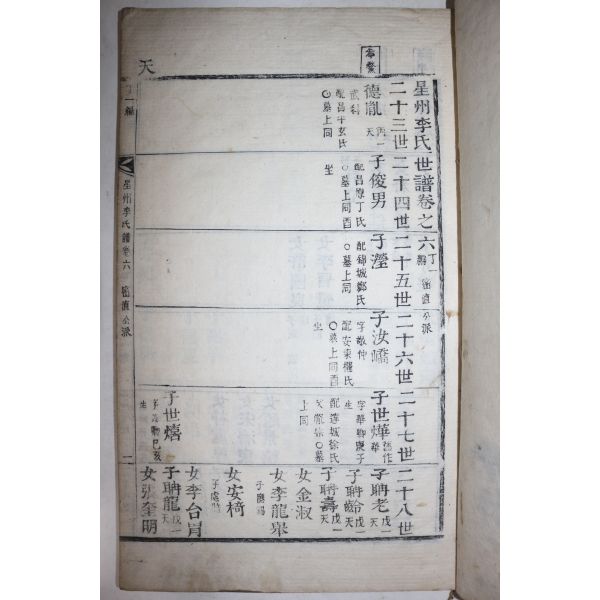 星州李氏世譜卷之六 丁一編 密直公派
二十三世
二十四世
二十五世
二十六世
二十七世
二十八世
德胤
武科
配昌平玄氏
○墓上同
子俊男
配昌原丁氏
○墓上同酉
坐
子瀅
配錦城鄭氏
○墓上同
子汝嶠
字敬仲
配安東權氏
○墓上同酉
坐
子世燁
字華卿庚子
生
配達城徐氏
上同
子聃老
子聃齡
子聃壽
女金淑
女李龍舉
女安椅
女李台胄
子世熺
生
子聃龍
女張奎明
天
丁一編
星州李氏譜卷六
密直公派
二